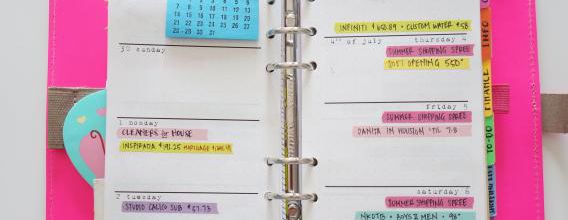 7 8 9 10 11 12 13
14 15 16 17 18 19 20
21 22 23 24 25 26 27
28 29 30 31
30 sunday
1 monday
CLEANERS & HOUSE
INSPIRADA $191.25
2 tuesday
STUDIO CALICO SUB $57.73
INFINITI • CUSTOM WATER $58
4th of july thursday 4
SUMMER SHOPPING SPREE
OPENING
friday 5
SUMMER SHOPPING SPREE
DANITA IN HOUSTON 'TIL 7-8
saturday 6
SUMMER SHOPPING SPREE
NKOTB • BOYZ II MEN • 98°
INFO
FINANCE
TO-DO